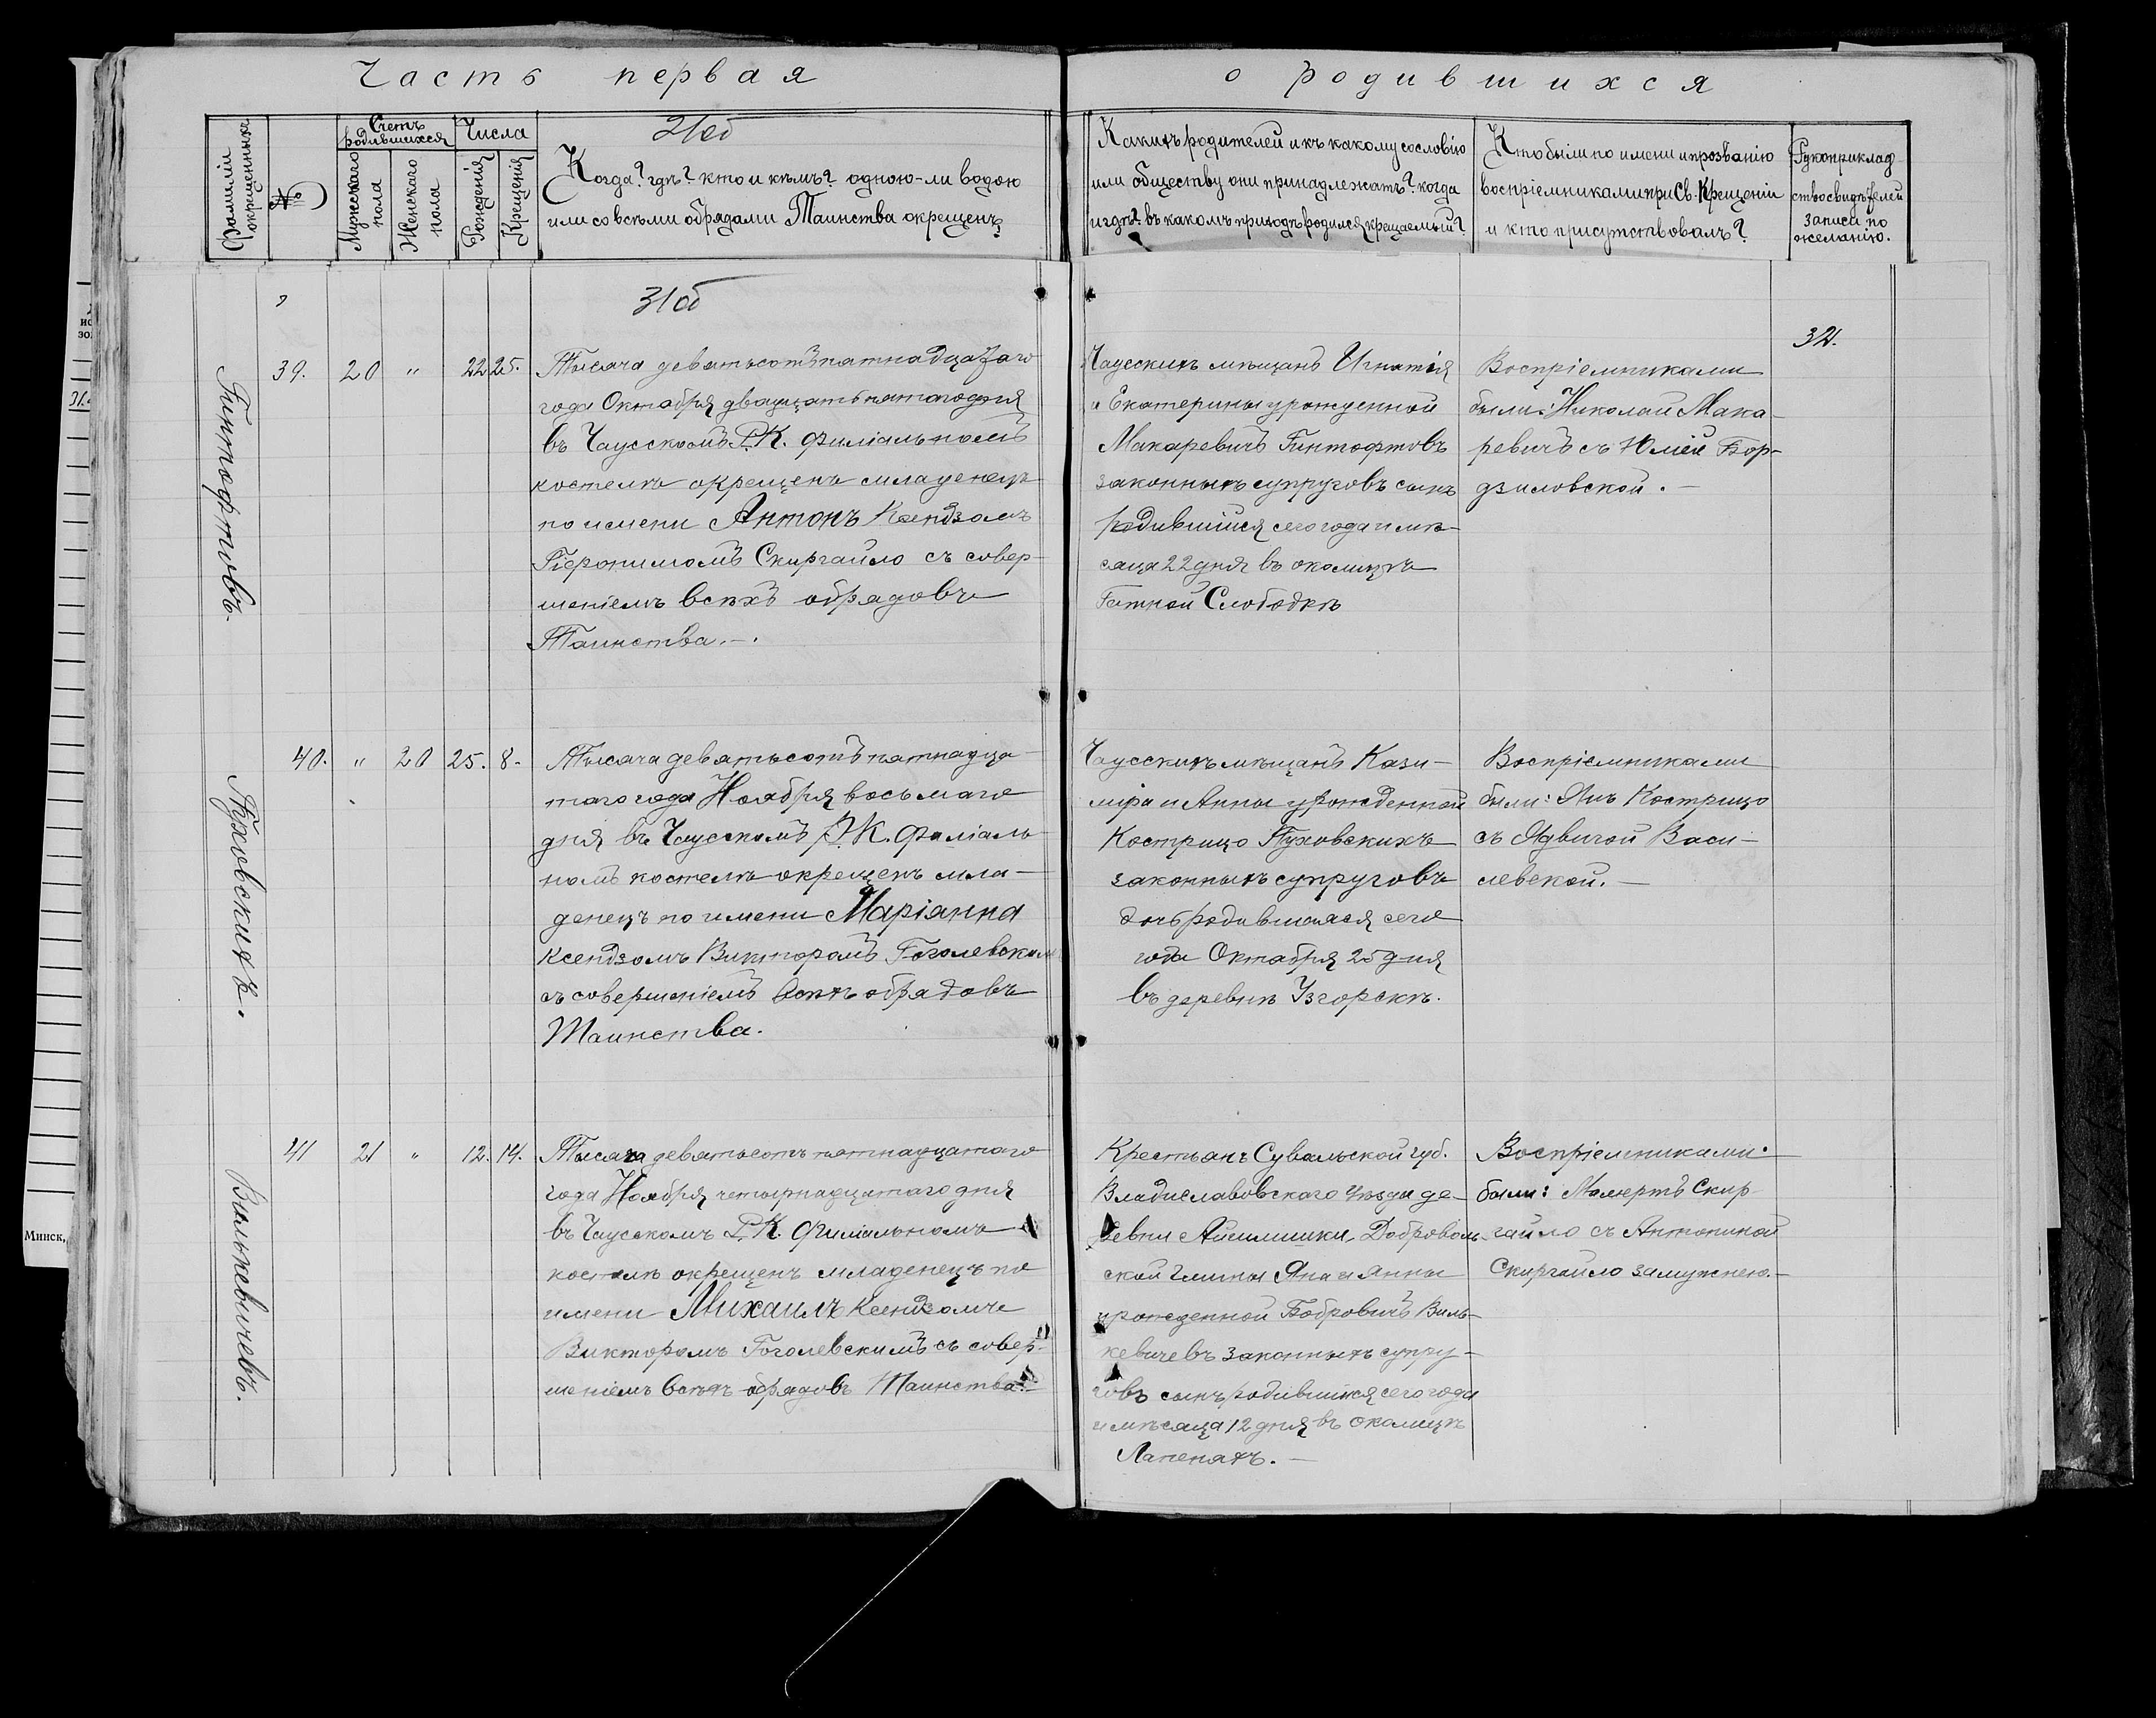 Часть первая
о родившихся
Фамиліи окрещенныхъ
№
Счетъ родившихся
Мужскаго пола
Женскаго пола
Числа
Рожденія
Крещенія
Когда? гдѣ? кто и кѣмъ? одною-ли водою
или со всѣми обрядами Таинства окрещенъ
Какихъ родителей и къ какому сословію
или обществу они принадлежатъ? когда
и гдѣ? въ какомъ приходѣ родился крещаемый?
Кто были по имени и прозванію
воспріемниками при Св. Крещеніи
и кто присутствовалъ?
Рукоприклад
ство свидѣтелей
записи по
желанію.
31об
32.
Гинтофтовъ.
39. 20 " 22 25.
Тысяча девятьсотъ пятнадцатаго
года Октября двадцать пятаго дня
въ Чаусскомъ Р.К. Филіальномъ
костелѣ окрещенъ младенецъ
по имени Антонъ Ксендзомъ
Геронимомъ Скиргайло съ совер-
шеніемъ всѣхъ обрядовъ
Таинства.-.
Чаусскихъ мѣщанъ Игнатія
и Екатерины урожденной
Макаревичъ Гинтофтовъ
законныхъ супруговъ сынъ
родившійся сего года и мѣ-
сяца 22 дня въ околицѣ
Гатной Слободкѣ
Воспріемниками
были: Николай Мака-
ревичъ съ Юліей Бор-
дзиловской.-
Пуховскихъ.
40. " 20 25. 8.
Тысяча девятьсотъ пятнадца-
таго года Ноября восьмаго
дня въ Чаусскомъ Р.К. Филіаль-
номъ костелѣ окрещенъ мла-
денецъ по имени Маріанна
Ксендзомъ Викторомъ Гоголевским
съ совершеніемъ всѣхъ обрядовъ
Таинства.
Чаусскихъ мѣщанъ Кази-
міра и Анны урожденной
Кострицо Пуховскихъ
законныхъ супруговъ
дочь родившаяся сего
года Октября 25 дня
въ деревнѣ Узгорскъ.
Воспріемниками
были: Янъ Кострицо
съ Ядвигой Васи-
левской.-
Вилькевичевъ.
41 21 " 12. 14.
Тысяча девятьсотъ пятнадцатаго
года Ноября четырнадцатаго дня
въ Чаусскомъ Р.К. Филіальномъ
костелѣ окрещенъ младенецъ по
имени Михаилъ Ксендзомъ
Викторомъ Гоголевскимъ съ совер-
шеніемъ всѣхъ обрядовъ Таинства.-
Крестьянъ Сувальской губ.
Владиславовскаго уѣзда де-
ревни Добровол-
ской Гмины Яна и Анны
урожденной Бобровичъ Виль-
кевичевъ законныхъ супру-
говъ сынъ родившійся сего года
и мѣсяца 12 дня въ околицѣ
Лапеняхъ.-
Воспріемниками
были: Скир-
гайло съ Антониной
Скиргайло замужнею.-
Минск,